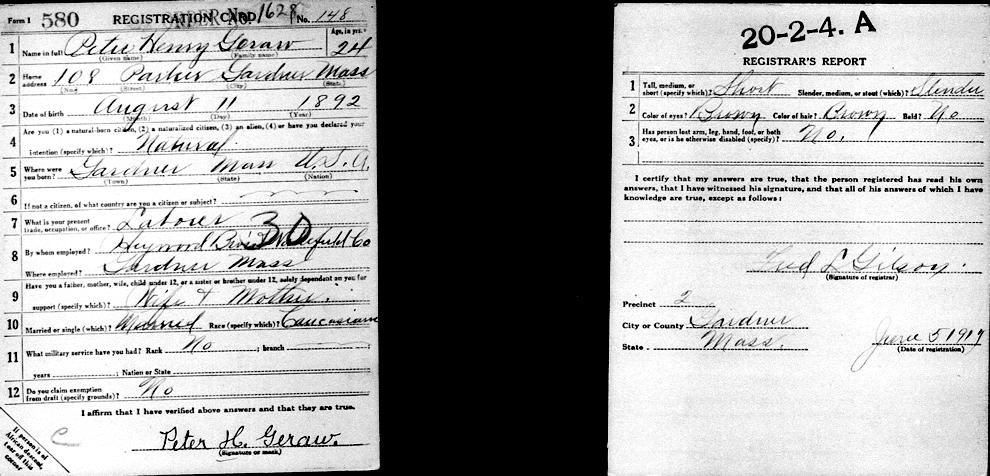 Form 1 580 REGISTRATION CARD No. 1628 No. 148
1 Name in full Peter Henry Geraw Age, in yrs. 24
(Given name) (Family name)
2 Home address 108 Parker Gardner Mass
(No.) (Street) (City) (State)
3 Date of birth August 11 1892
(Month) (Day) (Year)
4 Are you (1) a natural-born citizen, (2) a naturalized citizen, (3) an alien, (4) or have you declared your
intention (specify which)? Natural
5 Where were you born? Gardner Mass U.S.A.
(Town) (State) (Nation)
6 If not a citizen, of what country are you a citizen or subject?
7 What is your present trade, occupation, or office? Laborer 30
8 By whom employed? Heywood Bros. Wakefield Co
Where employed? Gardner Mass
9 Have you a father, mother, wife, child under 12, or a sister or brother under 12, solely dependent on you for
support (specify which)? Wife + Mother.
10 Married or single (which)? Married Race (specify which)? Caucasian
11 What military service have you had? Rank No ; branch
years ; Nation or State
12 Do you claim exemption from draft (specify grounds)? No
I affirm that I have verified above answers and that they are true.
Peter H. Geraw.
(Signature or mark)
If person is of African descent, tear off this corner
C
20-2-4. A
REGISTRAR'S REPORT
1 Tall, medium, or short (specify which)? Short Slender, medium, or stout (which)? Slender
2 Color of eyes? Brown Color of hair? Brown Bald? No
3 Has person lost arm, leg, hand, foot, or both eyes, or is he otherwise disabled (specify)? No.
I certify that my answers are true, that the person registered has read his own
answers, that I have witnessed his signature, and that all of his answers of which I have
knowledge are true, except as follows:
Fred L Gilson.
(Signature of registrar)
Precinct 2
City or County Gardner
State Mass. June 5 1917
(Date of registration)